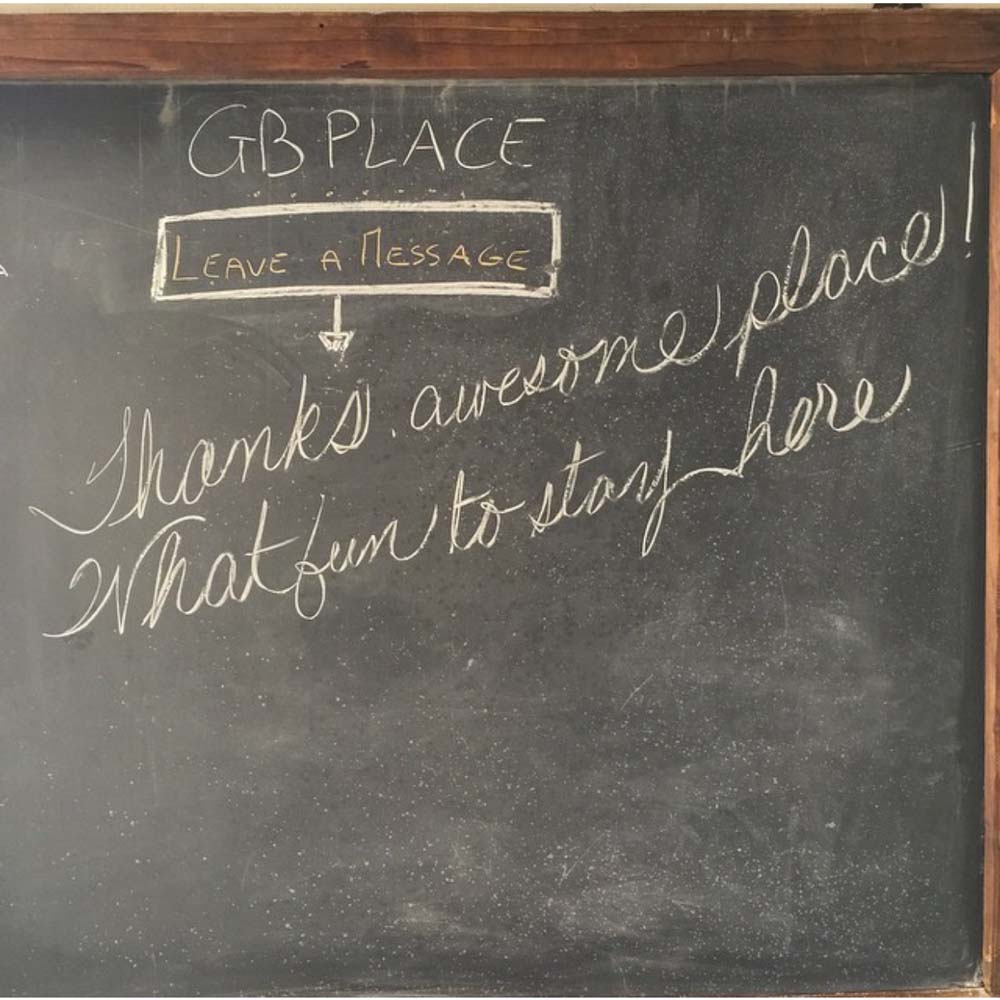 GB PLACE
LEAVE A MESSAGE
Thanks. awesome place!
What fun to stay here